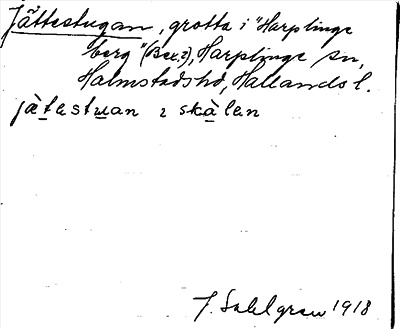 Jättestugan, grotta i "Harplinge
berg" (Bex.2), Harplinge sn,
Halmstads hd, Hallands l.
jàtestuan i skàlen
J. Sahlgren 1918